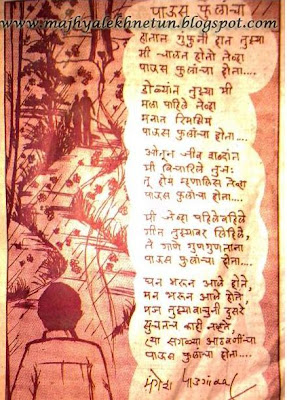 www.majhyalekhnetun.blogspot.com
पाऊस फुलांचा
हातात गुंफुनी हात तुझ्या
मी चालत होतो तेव्हा
पाऊस फुलांचा होता....
डोळ्यांत तुझ्या मी
मला पाहिले तेव्हा
मनात रिमझिम
पाऊस फुलांचा होता....
ओतून जीव शब्दांत
मी विचारिले तुज:
तू होय म्हणालिस तेव्हा
पाऊस फुलांचा होता....
मी जेव्हा पहिलेवहिले
गीत तुझ्यावर लिहिले,
ते गाणे गुणगुणताना
पाऊस फुलांचा होता....
घन भरून आले होते,
मन भरून आले होते,
मज तुझ्यावाचुनी दुसरे
सुचतच काही नव्हते
त्या सगळ्या आठवणींचा
पाऊस फुलांचा होता....
मंगेश पाडगांवकर